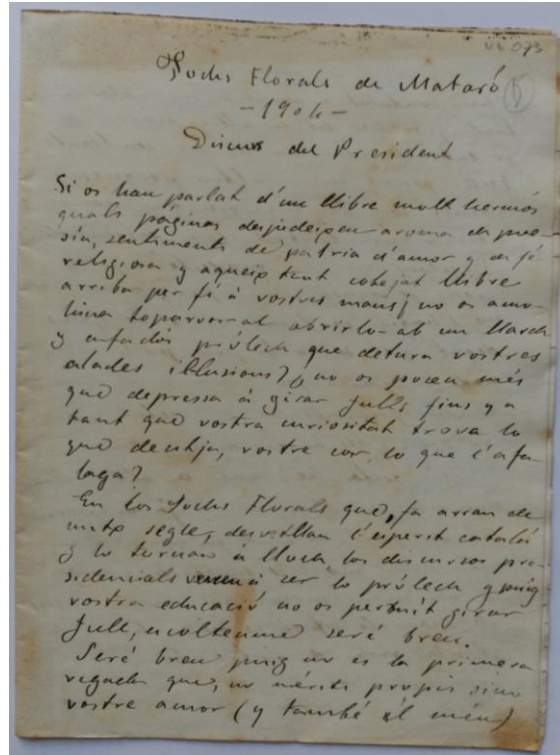 VL 073
Jochs Florals de Mataró
-1904-
Discurs del President
Si os han parlat d'un llibre molt hermós
quals páginas despideixen aroma de poe
sía, sentiments de patria d'amor y de fé
religiosa y aqueix tant cobejat llibre
arriba per fi á vostres mans ¿no os amo
hina toparvos-al obrirlo-ab un llarch
y enfadós prólech que detura vostres
alades illusions? ¿no os poseu més
que depressa á girar fulls fins y a
tant que vostra curiositat trova lo
que desitja, vostre cor lo que l'afa-
laga?
En los Jochs Florals que, fa arran de
mitx segle, desvetllan l'esperit catalá
y lo tornan á lloch, los discursos pre
sidencials venen á ser lo prólech y puig
vostra educació no os permet girar
full, escolteume seré breu.
Seré breu puig no es la primera
vegada que, no mérits propis sino
vostre amor (y també el meu)